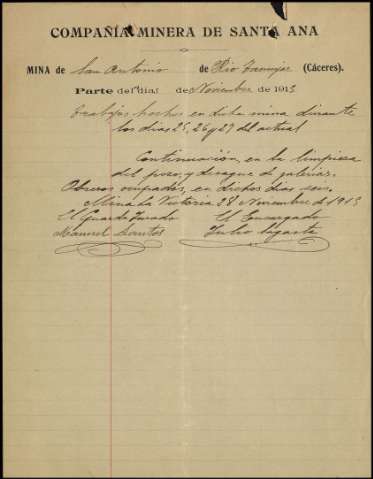 COMPAÑÍA MINERA DE SANTA ANA
MINA de San Antonio de Rio (Cáceres).
Parte del día de Noviembre de 1913
Trabajos hechos en dicha mina durante
los dias 25, 26 y 27 del actual
Continuación, en la limpieza
del pozo, y desague de galerias.
Obreros ocupados, en dichos dias seis.
Mina la Victoria 28 Noviembre de 1913
El Guarda Jurado El Encargado
Manuel Santos Julio Ugarte